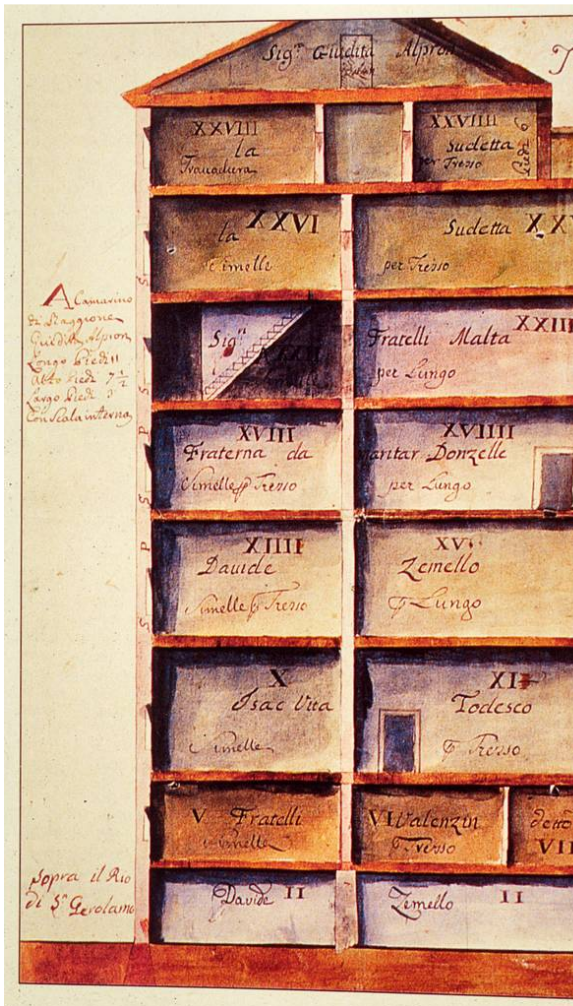 Sig.ra Giudita Alpron
T
XXVIII
la
Travadura
XXVIIII
Sudetta
per Tresso
Piedi 6
XXVI
la
Simelle
Sudetta XXV
per Tresso
A Camarino
di Raggione
Giudita Alpron
Longo Piedi 11
Alto Piedi 7 1/2
Largo Piedi 3
Con Scala interna
Sig.ra
Fratelli Malta XXIII
per Lungo
XVIII
Fraterna da
Simelle p Tresso
XVIIII
Margaritar Donzelle
per Lungo
S
S
P
S
P
S
XIIII
Davide
Simelle p Tresso
XV
Zemello
p Lungo
X
Isac Vita
Simelle
XI
Todesco
p Tresso
V Fratelli
Simelle
VI Valenzin
p Tresso
detto
VII
Sopra il Rio
di S.n Gerolamo
Davide II
Zemello II